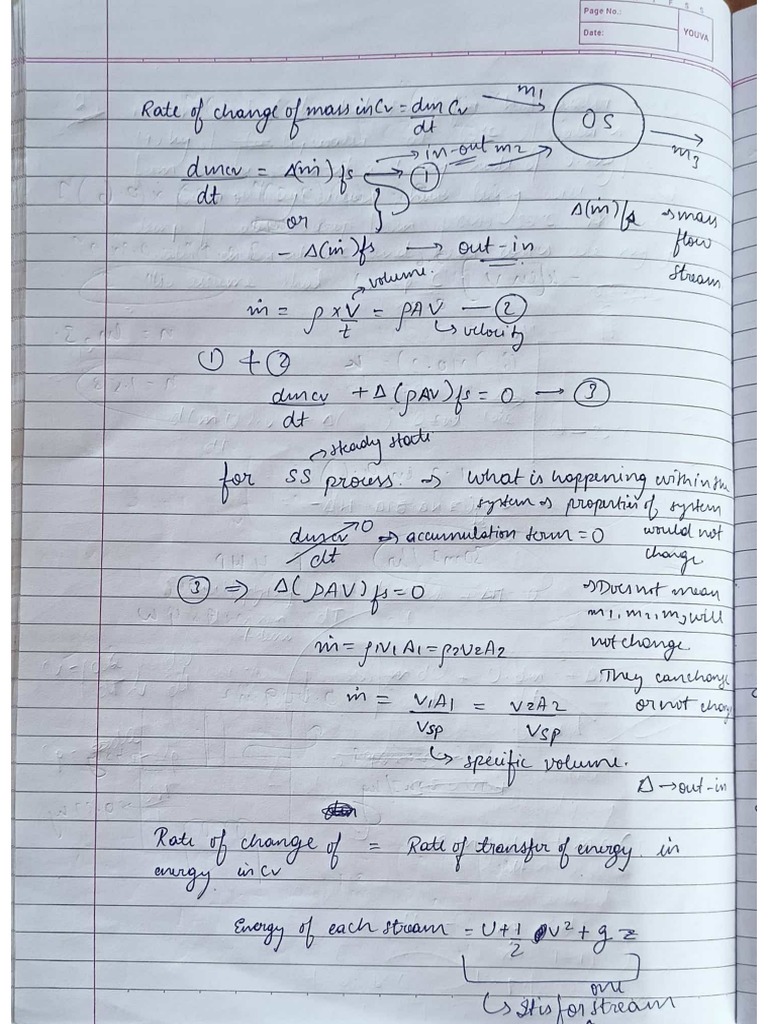 Page No.:
Date:
YOUVA
Rate of change of mass in CV = dm CV / dt
m1
OS
m3
in-out m2
dmcv / dt = Δ(ṁ)fs → ①
or
- Δ(ṁ)fs → out-in
Δ(ṁ)fs → mass
flow
stream
volume.
ṁ = ρ x V / t = ρAV — ②
velocity
① + ②
dmcv / dt + Δ(ρAV)fs = 0 → ③
steady state
for SS process → What is happening within the
system → properties of system
would not
change
dmcv / dt 0 → accumulation term = 0
③ ⇒ Δ(ρAV)fs = 0
→ Does not mean
m1, m2, m3 will
not change
ṁ = ρ1V1A1 = ρ2V2A2
They can change
or not chang
ṁ = V1A1 / Vsp = V2A2 / Vsp
specific volume.
Δ → out-in
Rate of change of = Rate of transfer of energy in
energy in CV
Energy of each stream = U + 1/2 V² + g z
one
It is for stream